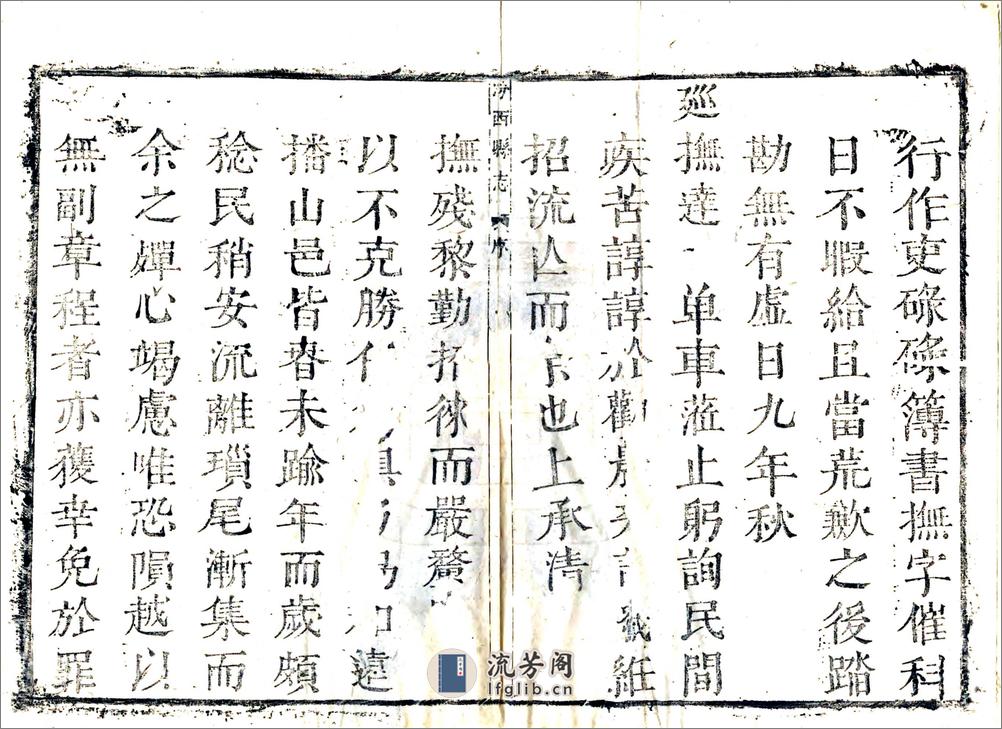 行作吏碌碌簿書撫字催科
日不暇給且當荒歉之後踏
勘無有虛日九年秋
廵撫達 单車蒞止躬詢民間
疾苦諄諄於勸
招流亾而 也上承清
汾西縣志 序
撫殘黎勤招徠而嚴
以不克勝 遠
播山邑皆春未踰年而歲頗
稔民稍安流離瑣尾漸集而
余之殫心竭慮唯恐隕越以
無副章程者亦獲幸免於罪
流芳阁
lfglib.cn